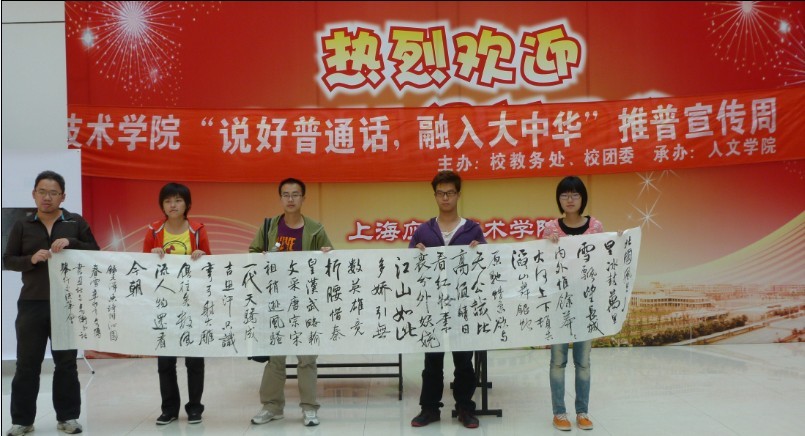 热烈欢迎
技术学院“说好普通话，融入大中华”推普宣传周
主办：校教务处、校团委 承办：人文学院
上海应 术学院
北國風光千
里冰封萬里
雪飘望長城
内外惟餘莽莽
大河上下頓失
滔滔山舞銀蛇
原馳蠟象欲与
天公試比
高須晴日
看红妝素
裹分外妖娆
江山如此
多嬌引無
數英雄竞
折腰惜秦
皇漢武略輸
文采唐宗宋
祖稍逊風骚
一代天骄成
吉思汗只識
弯弓射大雕
俱往矣數風
流人物還看
今朝